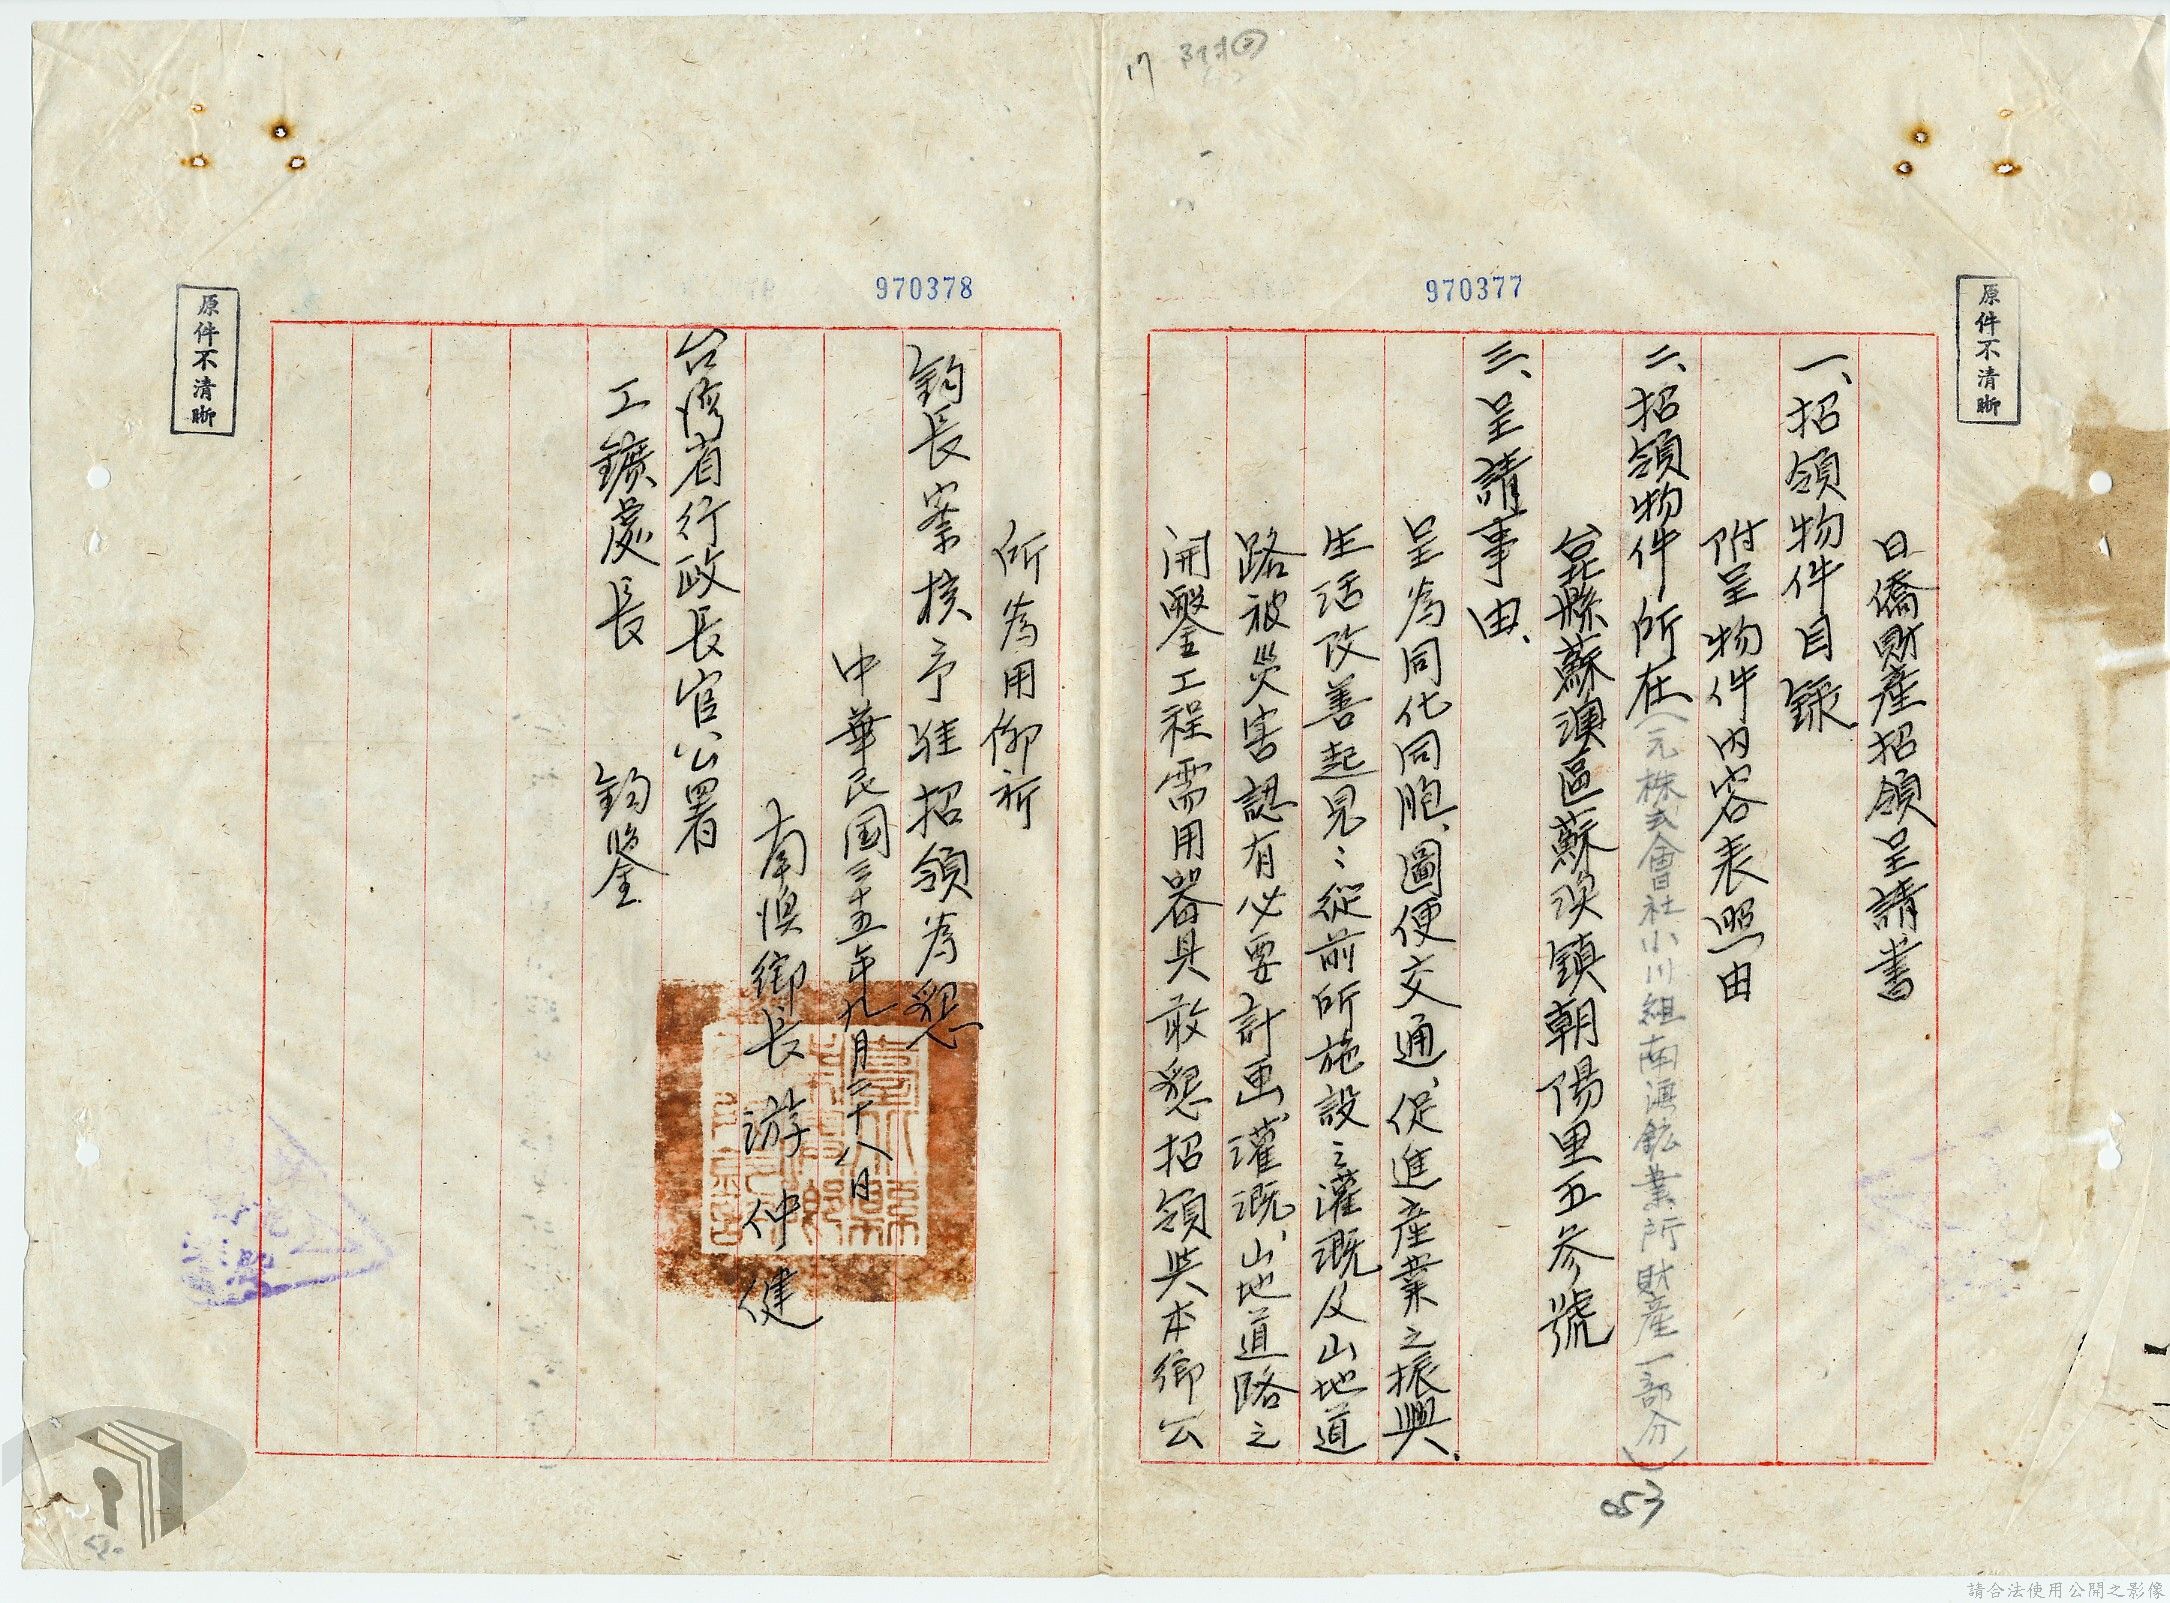 970377
原件不清晰
日僑財産招領呈請書
一、招領物件目錄
附呈物件內容表照由
二、招領物件所在(元株式會社小川組南澳鉱業所財産一部分)
台北縣蘇澳區蘇澳鎮朝陽里五参號
三、呈請事由、
呈為同化同胞、圖便交通、促進産業之振興、
生活改善起見、從前所施設之灌溉及山地道
路被災害認有必要計画灌溉、山地道路之
開鑿工程需用器具敢懇招領與本鄉公
053
17
970378
所為用仰祈
鈞長察核予准招領為懇
中華民国三十五年九月二十八日
南澳鄉長 游仲健
台湾省行政長官公署
工鑛處長 鈞鑒
原件不清晰
請合法使用公開之影像